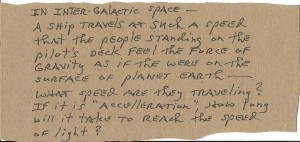 IN INTER-GALACTIC SPACE —
A SHIP TRAVELS AT SUCH A SPEED
that the people STANDING ON the
pilot's DECK FEEL the FORCE OF
GRAVITY AS IF THE WERE ON THE
SURFACE OF PLANET EARTH —
WHAT SPEED ARE they TRAVELING?
IF IT IS "ACCELLERATION", HOW long
will it TAKE to REACH the SPEED
of light?